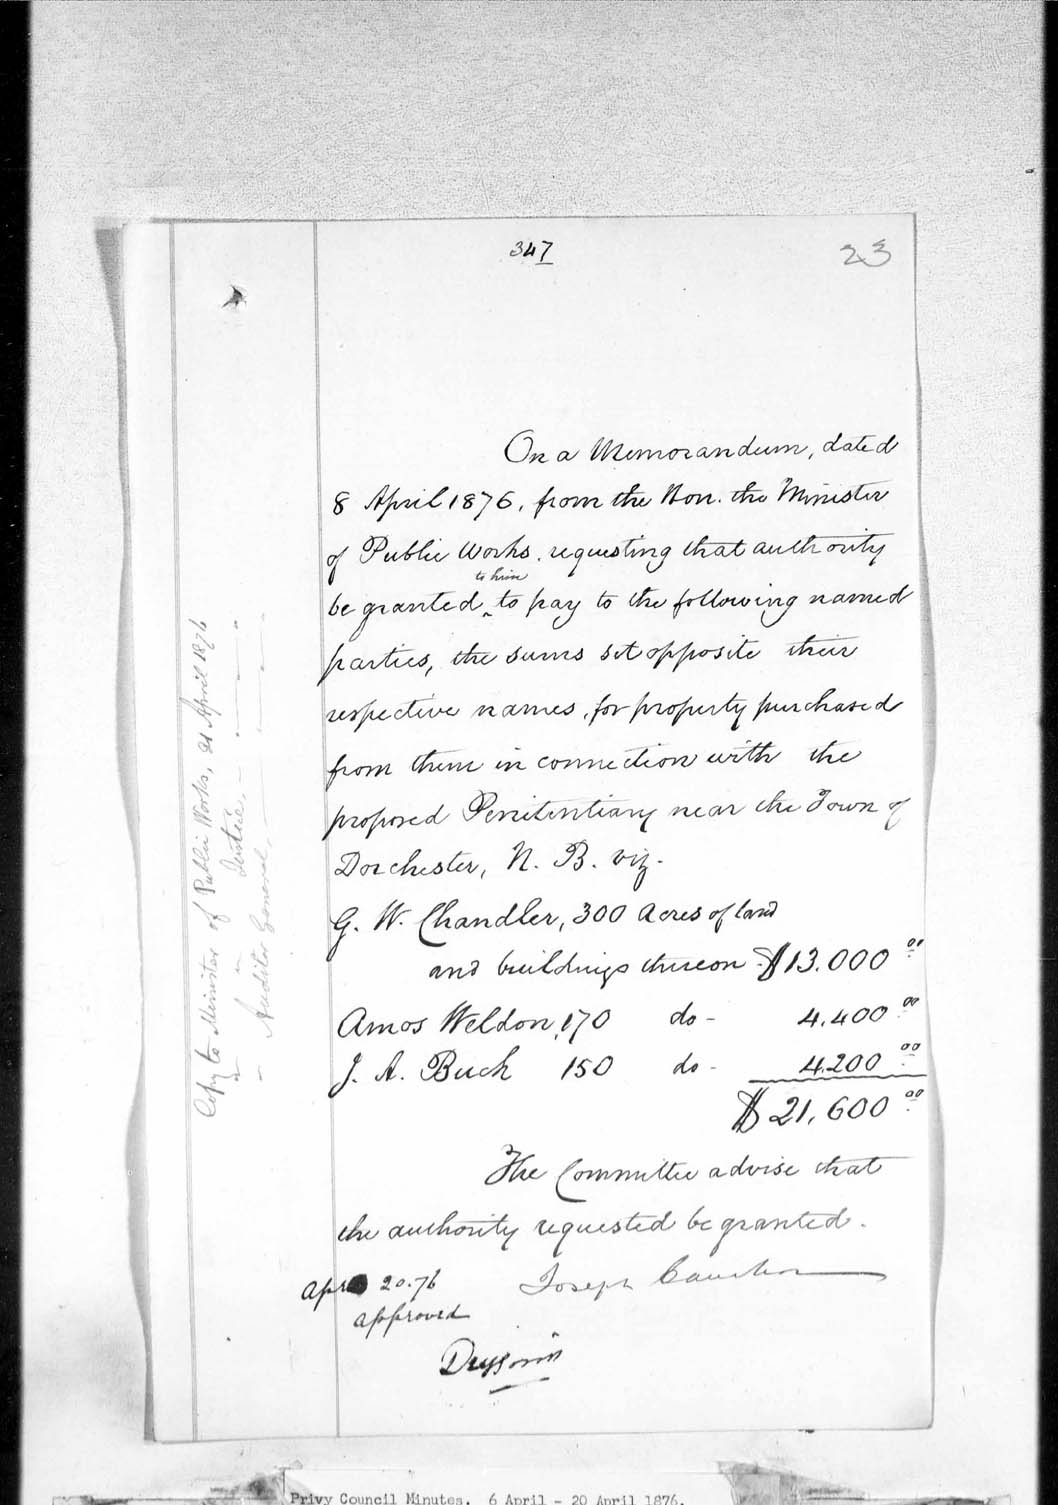 347
23
On a Memorandum, dated
8 April 1876, from the Hon. the Minister
of Public Works, requesting that authority
to him
be granted ^ to pay to the following named
parties, the sums set opposite their
respective names, for property purchased
from them in connection with the
proposed Penitentiary near the Town of
Dorchester, N. B. viz.
G. W. Chandler, 300 Acres of land
and buildings thereon - $13.000 00
Amos Weldon, 170 do - 4.400 00
J. A. Buck 150 do - 4.200 00
$21,600 00
The Committee advise that
the authority requested be granted.
Joseph Cauchon
Apr 20.76
approved
Dufferin
Copy to Minister of Public Works, 21 April 1876
" " Justice, - " "
- Auditor General, - - -
Privy Council Minutes. 6 April - 20 April 1876.